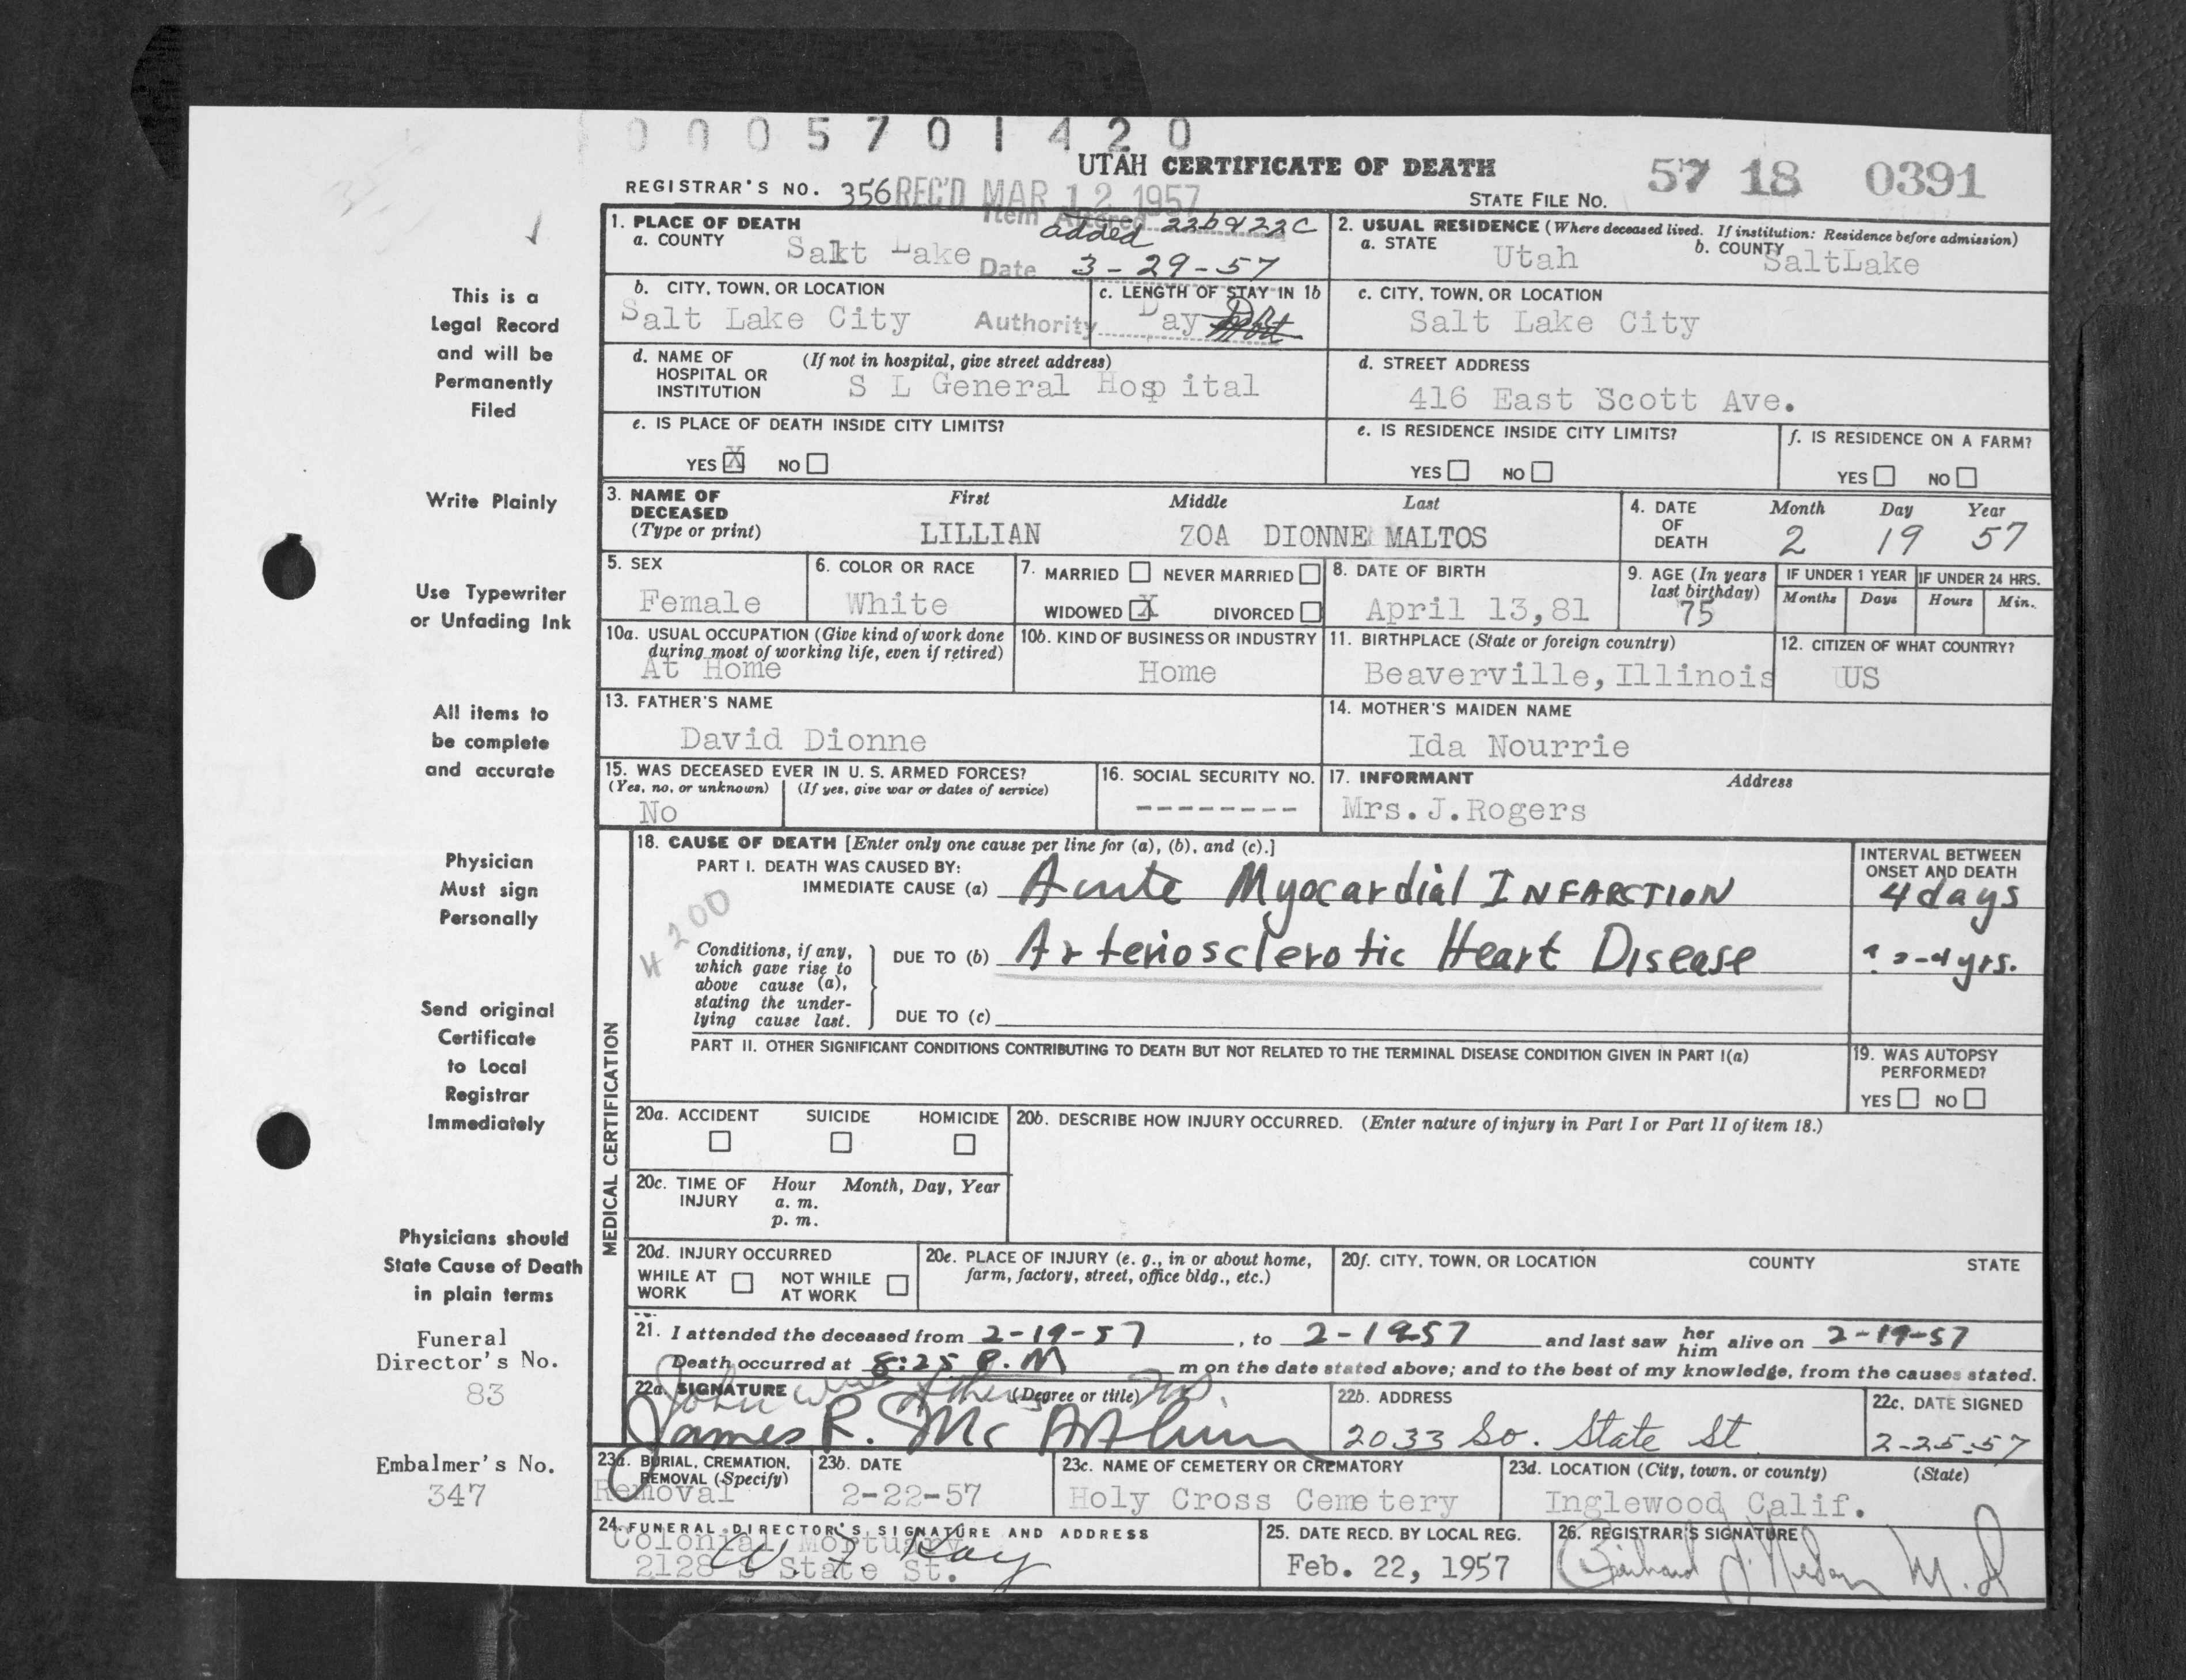 0005701420
UTAH CERTIFICATE OF DEATH
57 18 0391
REGISTRAR'S NO. 356 REC'D MAR 12 1957
STATE FILE NO.
Item Altered added 22b & 22c
Date 3-29-57
Authority
1. PLACE OF DEATH
a. COUNTY Salt Lake
2. USUAL RESIDENCE (Where deceased lived. If institution: Residence before admission)
a. STATE Utah b. COUNTY SaltLake
b. CITY, TOWN, OR LOCATION Salt Lake City
c. LENGTH OF STAY IN 1b Day
c. CITY, TOWN, OR LOCATION Salt Lake City
d. NAME OF HOSPITAL OR INSTITUTION (If not in hospital, give street address) S L General Hosp ital
d. STREET ADDRESS 416 East Scott Ave.
e. IS PLACE OF DEATH INSIDE CITY LIMITS?
YES X NO
e. IS RESIDENCE INSIDE CITY LIMITS?
YES NO
f. IS RESIDENCE ON A FARM?
YES NO
3. NAME OF DECEASED (Type or print)
First Middle Last
LILLIAN ZOA DIONNE MALTOS
4. DATE OF DEATH
Month Day Year
2 19 57
5. SEX Female
6. COLOR OR RACE White
7. MARRIED NEVER MARRIED
WIDOWED X DIVORCED
8. DATE OF BIRTH April 13,81
9. AGE (In years last birthday) 75
IF UNDER 1 YEAR Months Days
IF UNDER 24 HRS. Hours Min.
10a. USUAL OCCUPATION (Give kind of work done during most of working life, even if retired) At Home
10b. KIND OF BUSINESS OR INDUSTRY Home
11. BIRTHPLACE (State or foreign country) Beaverville, Illinois
12. CITIZEN OF WHAT COUNTRY? US
13. FATHER'S NAME David Dionne
14. MOTHER'S MAIDEN NAME Ida Nourrie
15. WAS DECEASED EVER IN U. S. ARMED FORCES?
(Yes, no, or unknown) (If yes, give war or dates of service)
No
16. SOCIAL SECURITY NO. --------
17. INFORMANT Address
Mrs.J.Rogers
MEDICAL CERTIFICATION
18. CAUSE OF DEATH [Enter only one cause per line for (a), (b), and (c).]
PART I. DEATH WAS CAUSED BY:
IMMEDIATE CAUSE (a) Acute Myocardial INFARCTION
INTERVAL BETWEEN ONSET AND DEATH
4 days
4200
Conditions, if any, which gave rise to above cause (a), stating the underlying cause last.
DUE TO (b) Arteriosclerotic Heart Disease
yrs.
DUE TO (c)
PART II. OTHER SIGNIFICANT CONDITIONS CONTRIBUTING TO DEATH BUT NOT RELATED TO THE TERMINAL DISEASE CONDITION GIVEN IN PART I(a)
19. WAS AUTOPSY PERFORMED?
YES NO
20a. ACCIDENT SUICIDE HOMICIDE
20b. DESCRIBE HOW INJURY OCCURRED. (Enter nature of injury in Part I or Part II of item 18.)
20c. TIME OF INJURY Hour Month, Day, Year
a. m.
p. m.
20d. INJURY OCCURRED
WHILE AT WORK NOT WHILE AT WORK
20e. PLACE OF INJURY (e. g., in or about home, farm, factory, street, office bldg., etc.)
20f. CITY, TOWN, OR LOCATION COUNTY STATE
21. I attended the deceased from 2-19-57, to 2-19-57 and last saw her him alive on 2-19-57
Death occurred at 8:25 P.M m on the date stated above; and to the best of my knowledge, from the causes stated.
22a. SIGNATURE (Degree or title)
James R. McArthur
22b. ADDRESS 2033 So. State St.
22c. DATE SIGNED 2-25-57
23a. BURIAL, CREMATION, REMOVAL (Specify) Removal
23b. DATE 2-22-57
23c. NAME OF CEMETERY OR CREMATORY Holy Cross Cemetery
23d. LOCATION (City, town, or county) (State) Inglewood Calif.
24. FUNERAL DIRECTOR'S SIGNATURE AND ADDRESS
Colonial Mortuary
2128 S State St.
25. DATE RECD. BY LOCAL REG. Feb. 22, 1957
26. REGISTRAR'S SIGNATURE
This is a
Legal Record
and will be
Permanently
Filed
Write Plainly
Use Typewriter
or Unfading Ink
All items to
be complete
and accurate
Physician
Must sign
Personally
Send original
Certificate
to Local
Registrar
Immediately
Physicians should
State Cause of Death
in plain terms
Funeral
Director's No.
83
Embalmer's No.
347